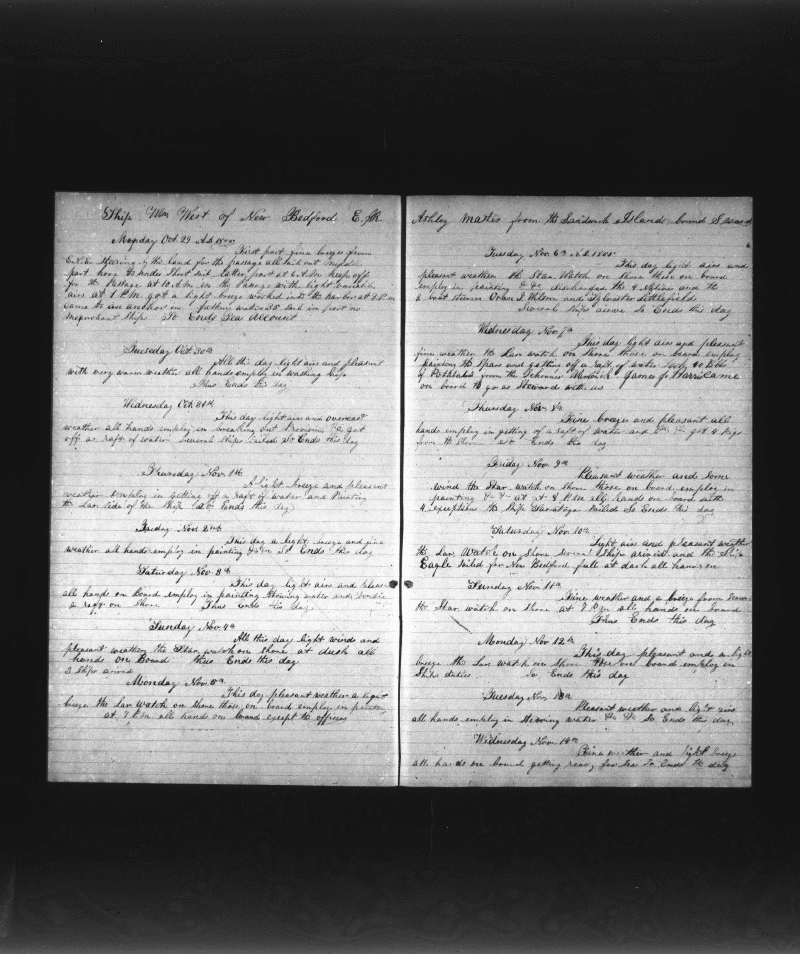 Ship Wm Wirt of New Bedford E. R.
Monday Oct 29 A.D.
First part fine breeze from
E.N.E. Steering by the land for the passage all sail out
part hove to under Short sail latter part at 6 A.M. keep off
for the Passage at 10 A.M. in the Passage with light variable
airs at 1 P.M. got a light breeze worked into the harbor at P.M.
came to an anchor in fathom water 35 in port no
Merchant Ships So Ends Sea Account
Tuesday Oct 30th
All this day light airs and pleasant
with very warm weather all hands employ in washing Ship
Thus Ends this day
Wednesday Oct 31st
This day light airs and overcast
weather all hands employ in breaking out Provisions &c got
off a raft of water Several Ships Sailed So Ends this day
Thursday Nov. 1st
A light breeze and pleasant
weather employ in getting of a raft of water and Painting
the Lar side of the Ship So Ends this day
Friday Nov. 2nd
This day a light breeze and fine
weather all hands employ in painting &c &c So Ends this day
Saturday Nov. 3th
This day light airs and pleas-
all hands on board employ in painting Stowing water and
a raft on Shore Thus Ends this day
Sunday Nov. 4th
All this day light winds and
pleasant weather the Star watch on shore at dusk all
hands on Board thus Ends this day
3 Ships arived
Monday Nov. 5th
This day pleasant weather a light
breeze the Lar Watch on Shore those on board employ in painting
at 7 P.M. all hands on board except the officers
Ashley Master from the Sandwich Island bound
Tuesday Nov. 6th A.D.
This day light airs and
pleasant weather the Star Watch on Shore those on board
employ in painting &c &c discharged the 4 and the
2 boat steerers and Sylvester Littlefield
Several Ships arive So Ends this day
Wednesday Nov. 7th
This day light airs and pleasant
fine weather the Lar watch on Shore those on board employ
painting the Spars and getting of a raft of water 40 Bbls
of from the Schooner James G. Harris came
on board to go as Steward with us
Thursday Nov. 8th
Fine breeze and pleasant all
hands employ in getting of a raft of water and &c &c got 4 Pigs
from the Shore So Ends this day
Friday Nov. 9th
Pleasant weather and some
wind the Star watch on shore those on board employ in
painting &c &c at 8 P.M. all hands on board with
4 exceptions the Ship Saratoga Sailed So Ends this day
Saturday Nov. 10th
Light airs and pleasant weather
the Lar Watch on Shore Several Ships arived and the Ship
Eagle Sailed for New Bedford full at dark all hands on
Sunday Nov. 11th
Fine weather and a breeze from
the Star watch on shore at 7 P.M. all hands on board
Thus Ends this day
Monday Nov 12th
This day pleasant and a light
breeze the Lar watch on Shore those on board employ in
Ships duties So Ends this day
Tuesday Nov. 13th
Pleasant weather and light airs
all hands employ in Stowing water &c &c So Ends this day
Wednesday Nov. 14th
Fine weather and light breeze
all hands on board getting ready for Sea So Ends the day